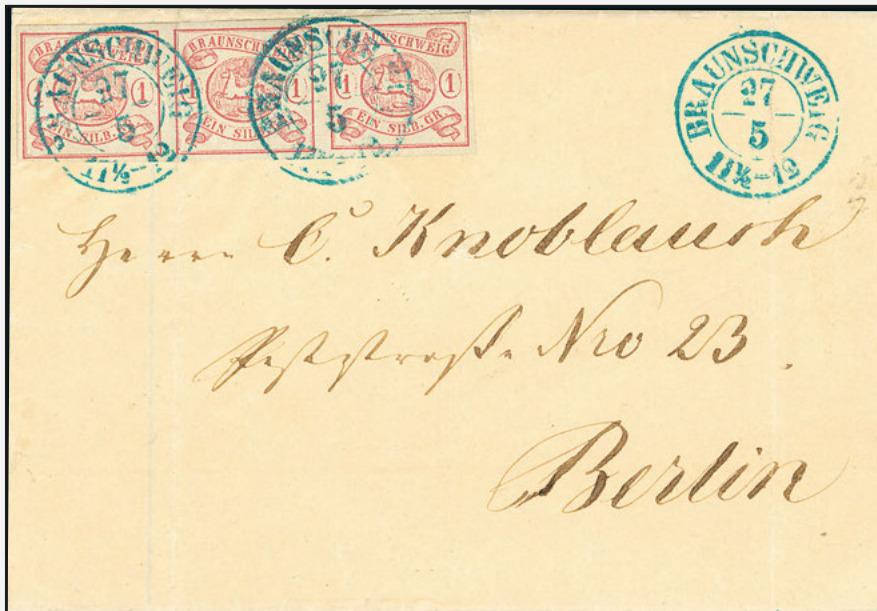 BRAUNSCHWEIG
1 1
EIN SILB. GR
BRAUNSCHWEIG
1 1
EIN SILB. GR
BRAUNSCHWEIG
1 1
EIN SILB. GR
BRAUNSCHWEIG
27
5
11½–12
BRAUNSCHWEIG
27
5
11½–12
BRAUNSCHWEIG
27
5
11½–12
Herrn C. Knoblauch
Poststraße Nro 23.
Berlin